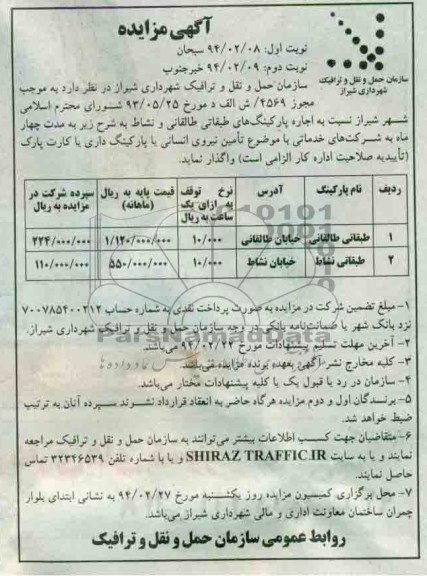 آگهی مزایده
سازمان حمل و نقل و ترافیک
شهرداری شیراز
نوبت اول: ۹۴/۰۲/۰۸ سبحان
نوبت دوم: ۹۴/۰۲/۰۹ خبرجنوب
سازمان حمل و نقل و ترافیک شهرداری شیراز در نظر دارد به موجب
مجوز ۴۵۶۹/ ش الف د مورخ ۹۳/۰۵/۲۵ شورای محترم اسلامی
شهر شیراز نسبت به اجاره پارکینگ‌های طبقاتی طالقانی و نشاط به شرح زیر به مدت چهار
ماه به شرکت‌های خدماتی با موضوع تأمین نیروی انسانی یا پارکینگ داری یا کارت پارک
(تأییدیه صلاحیت اداره کار الزامی است) واگذار نماید.
ردیف نام پارکینگ آدرس نرخ توقف به ازای یک ساعت به ریال قیمت پایه به ریال (ماهانه) سپرده شرکت در مزایده به ریال
۱ طبقاتی طالقانی خیابان طالقانی ۱۰/۰۰۰ ۱/۱۲۰/۰۰۰/۰۰۰ ۲۲۴/۰۰۰/۰۰۰
۲ طبقاتی نشاط خیابان نشاط ۱۰/۰۰۰ ۵۵۰/۰۰۰/۰۰۰ ۱۱۰/۰۰۰/۰۰۰
۱- مبلغ تضمین شرکت در مزایده به صورت پرداخت نقدی به شماره حساب ۷۰۰۷۸۵۴۰۰۲۱۲
نزد بانک شهر یا ضمانت‌نامه بانکی در وجه سازمان حمل و نقل و ترافیک شهرداری شیراز.
۲- آخرین مهلت تسلیم پیشنهادات مورخ ۹۴/۰۲/۲۳ می‌باشد.
۳- کلیه مخارج نشر آگهی بعهده برنده مزایده می‌باشد.
۴- سازمان در رد یا قبول یک یا کلیه پیشنهادات مختار می‌باشد.
۵- برندگان اول و دوم مزایده هرگاه حاضر به انعقاد قرارداد نشوند سپرده آنان به ترتیب
ضبط خواهد شد.
۶- متقاضیان جهت کسب اطلاعات بیشتر می‌توانند به سازمان حمل و نقل و ترافیک مراجعه
نمایند و یا به سایت SHIRAZ TRAFFIC.IR و یا با شماره تلفن ۳۲۳۴۶۵۳۹ تماس
حاصل نمایند.
۷- محل برگزاری کمیسیون مزایده روز یکشنبه مورخ ۹۴/۰۲/۲۷ به نشانی ابتدای بلوار
چمران ساختمان معاونت اداری و مالی شهرداری شیراز می‌باشد.
روابط عمومی سازمان حمل و نقل و ترافیک